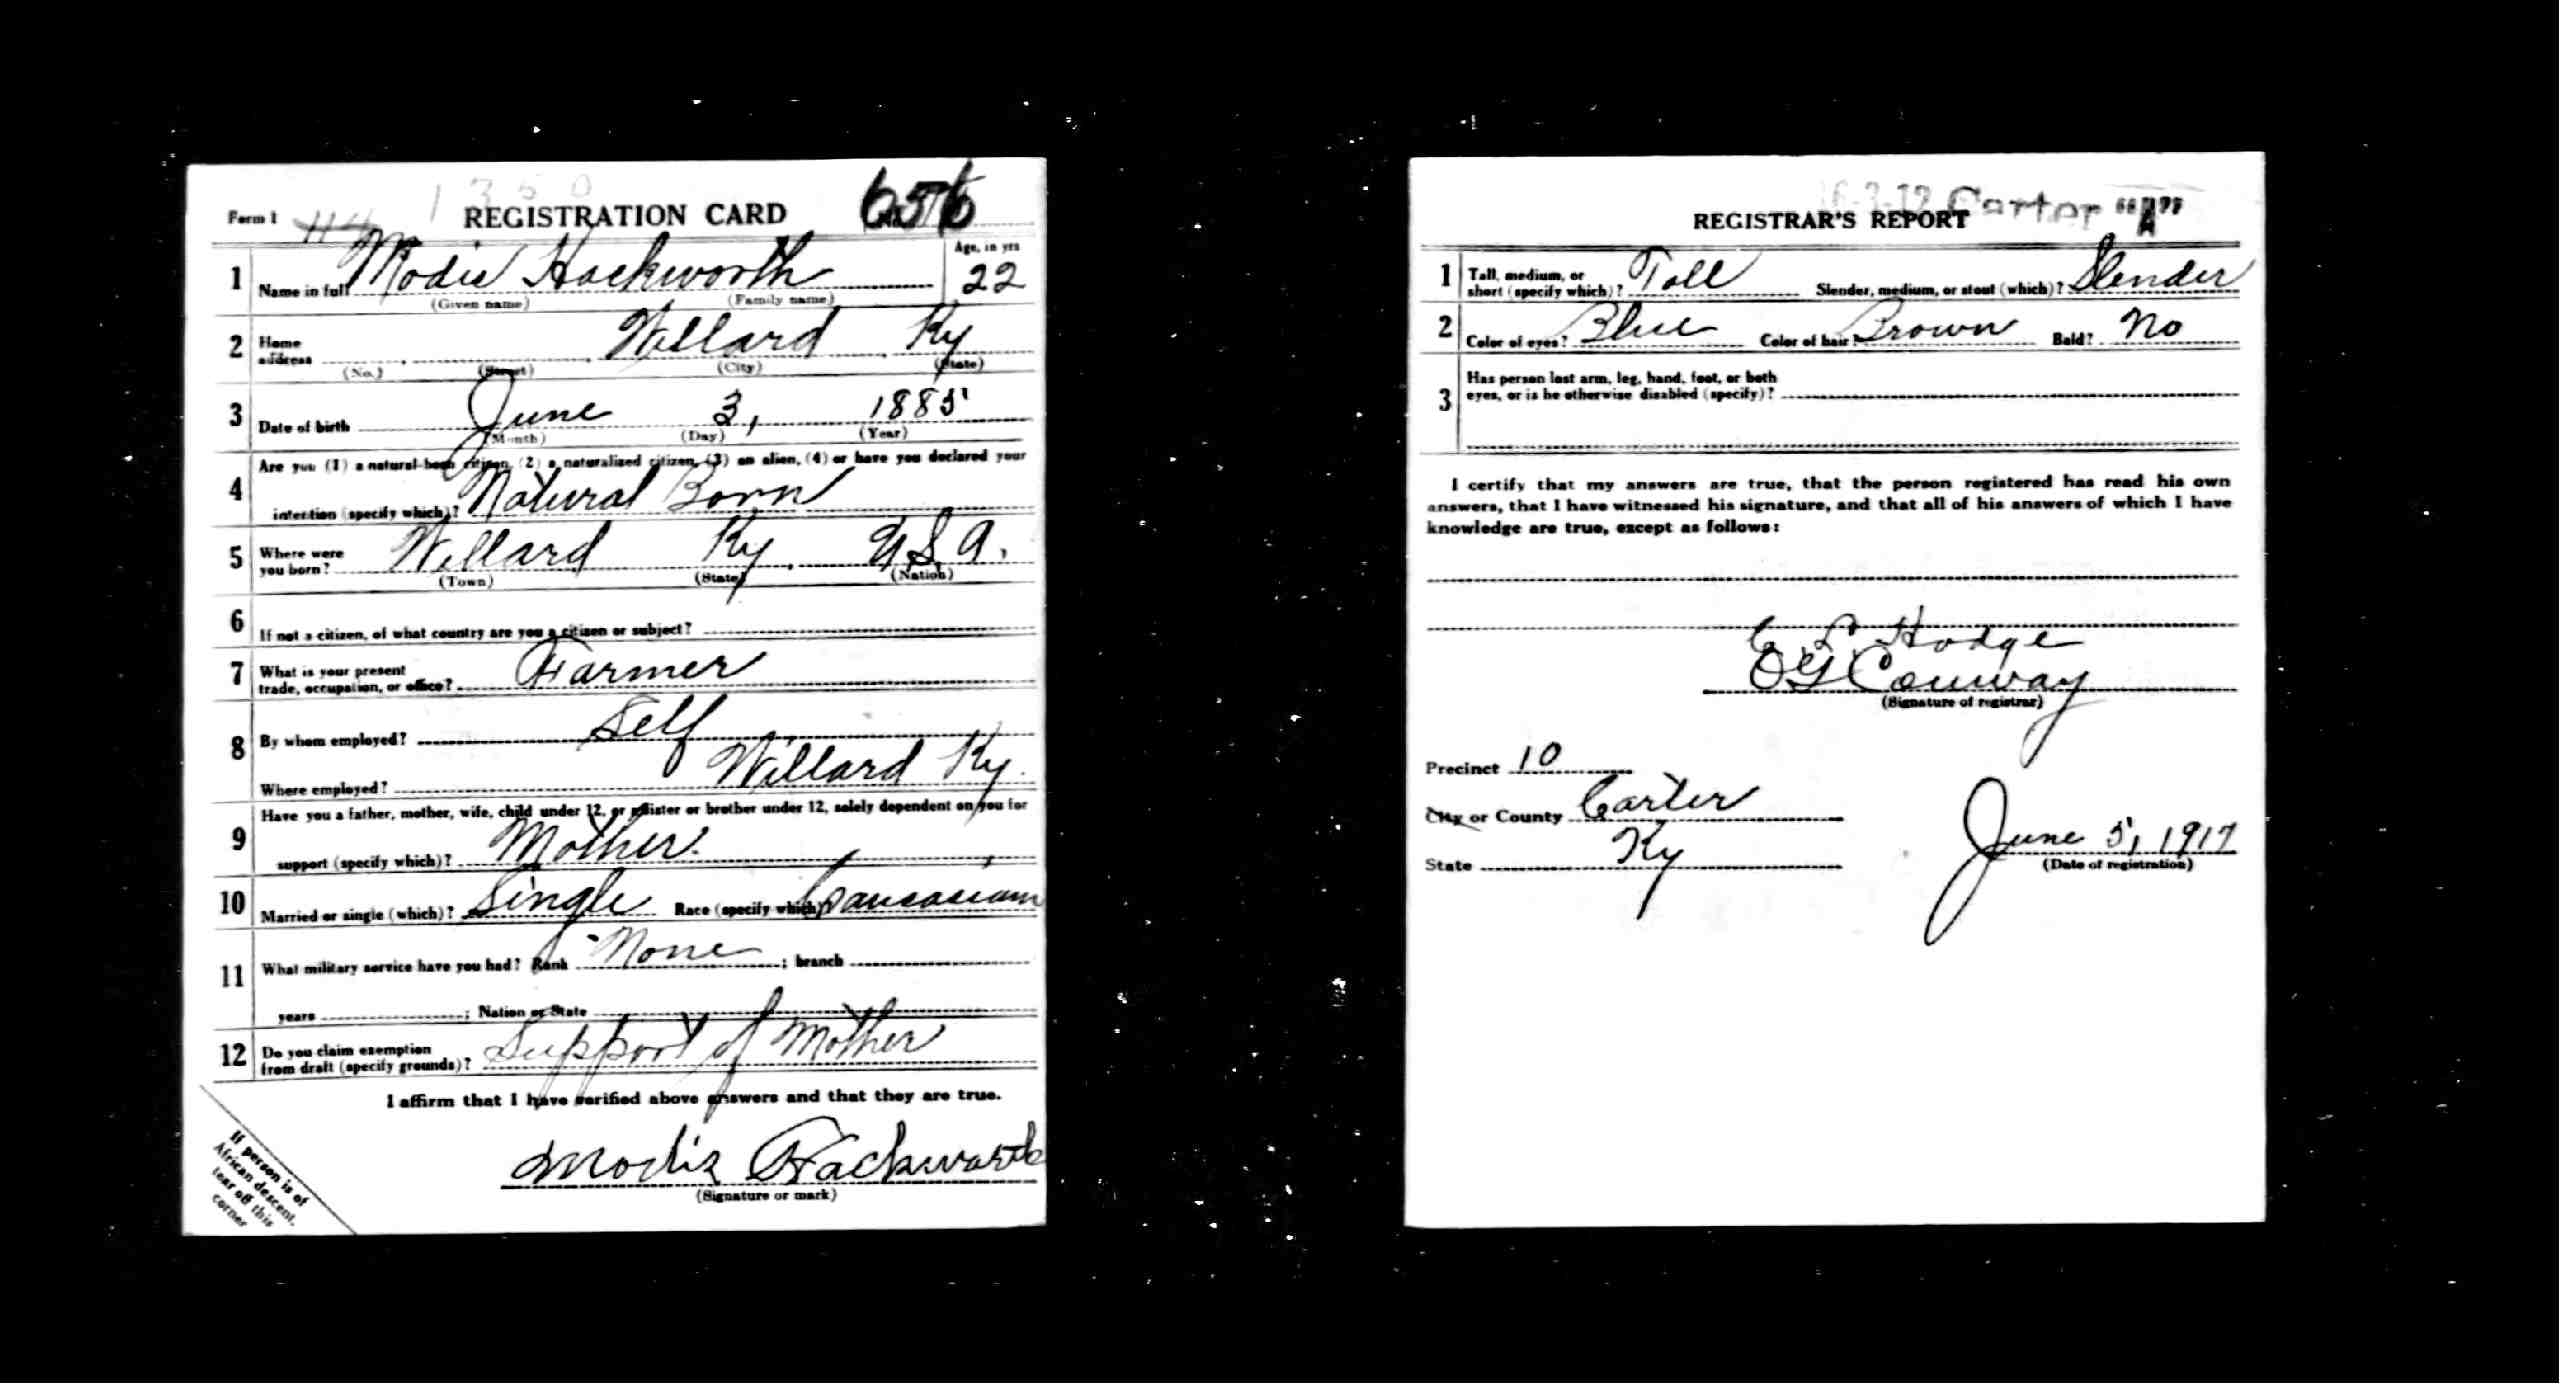 1350
Form 1 114 REGISTRATION CARD
Age, in yrs
1 Name in full Modie Hackworth 22
(Given name) (Family name)
2 Home address Willard Ky
(No.) (Street) (City) (State)
3 Date of birth June 3, 1885
(Month) (Day) (Year)
4 Are you (1) a natural-born citizen, (2) a naturalized citizen, (3) an alien, (4) or have you declared your
intention (specify which)? Natural Born
5 Where were you born? Willard Ky, U.S.A.
(Town) (State) (Nation)
6 If not a citizen, of what country are you a citizen or subject?
7 What is your present trade, occupation, or office? Farmer
8 By whom employed? Self
Where employed? Willard Ky.
9 Have you a father, mother, wife, child under 12, or a sister or brother under 12, solely dependent on you for
support (specify which)? Mother.
10 Married or single (which)? Single Race (specify which)? Caucasian
11 What military service have you had? Rank None ; branch
years ; Nation or State
12 Do you claim exemption from draft (specify grounds)? Support of Mother
I affirm that I have verified above answers and that they are true.
Modie Hackworth
(Signature or mark)
If person is of
African descent,
tear off this
corner
Carter "A"
REGISTRAR'S REPORT
1 Tall, medium, or short (specify which)? Tall Slender, medium, or stout (which)? Slender
2 Color of eyes? Blue Color of hair? Brown Bald? No
3 Has person lost arm, leg, hand, foot, or both
eyes, or is he otherwise disabled (specify)?
I certify that my answers are true, that the person registered has read his own
answers, that I have witnessed his signature, and that all of his answers of which I have
knowledge are true, except as follows:
E L Hodge
O G Conway
(Signature of registrar)
Precinct 10
City or County Carter
State Ky
June 5, 1917
(Date of registration)